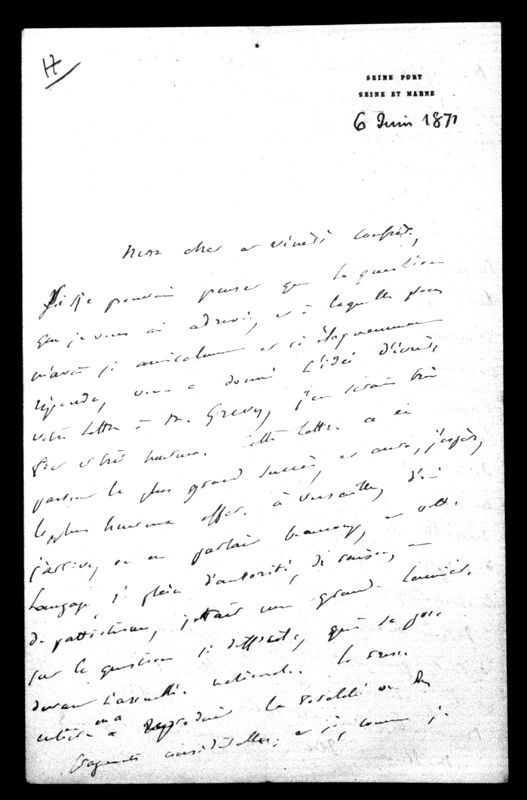 H
SEINE PORT
SEINE ET MARNE
6 Juin 1871
Mon cher et vénéré confrère,
Si je pouvais penser que la question
que je vous ai adressée, et à laquelle vous
m'avez si amicalement et si éloquemment
répondu, vous a donné l'idée d'écrire
votre lettre à M. Grévy, j'en serais très
fier et très heureux. Cette lettre a eu
partout le plus grand succès, et aura, j'espère,
le plus heureux effet. à Versailles, d'où
j'arrive, on en parlait beaucoup, et votre
langage si plein d'autorité, de raison, et
de patriotisme, jettait une grande lumière
sur la question si difficile, qui se pose
devant l'assemblée nationale. La presse
entière a reproduit la totalité ou des
fragments considérables, et si, comme je